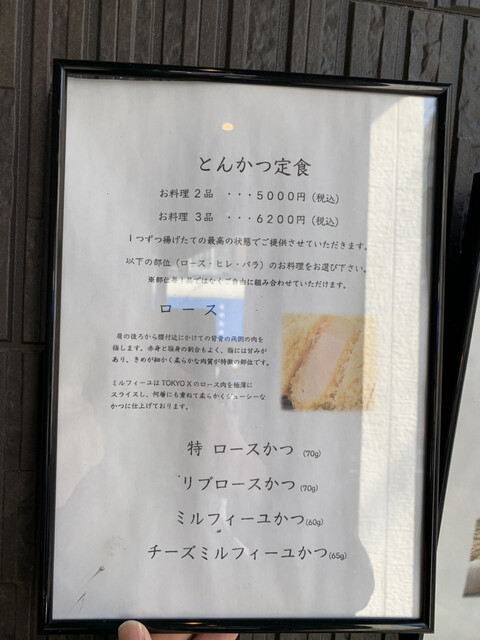 とんかつ定食
お料理 2品 ・・・5000円（税込）
お料理 3品 ・・・6200円（税込）
1つずつ揚げたての最高の状態でご提供させていただきます。
以下の部位（ロース・ヒレ・バラ）のお料理をお選び下さい。
※部位毎1品ではなくご自由に組み合わせていただけます。
ロース
肩の後ろから腰付近にかけての背骨の両側の肉を
指します。赤身と脂身の割合もよく、脂には甘みが
あり、きめが細かく柔らかな肉質が特徴の部位です。
ミルフィーユは TOKYO X のロース肉を極薄に
スライスし、何層にも重ねて柔らかくジューシーな
かつに仕上げております。
特 ロースかつ (70g)
リブロースかつ (70g)
ミルフィーユかつ (60g)
チーズミルフィーユかつ (65g)